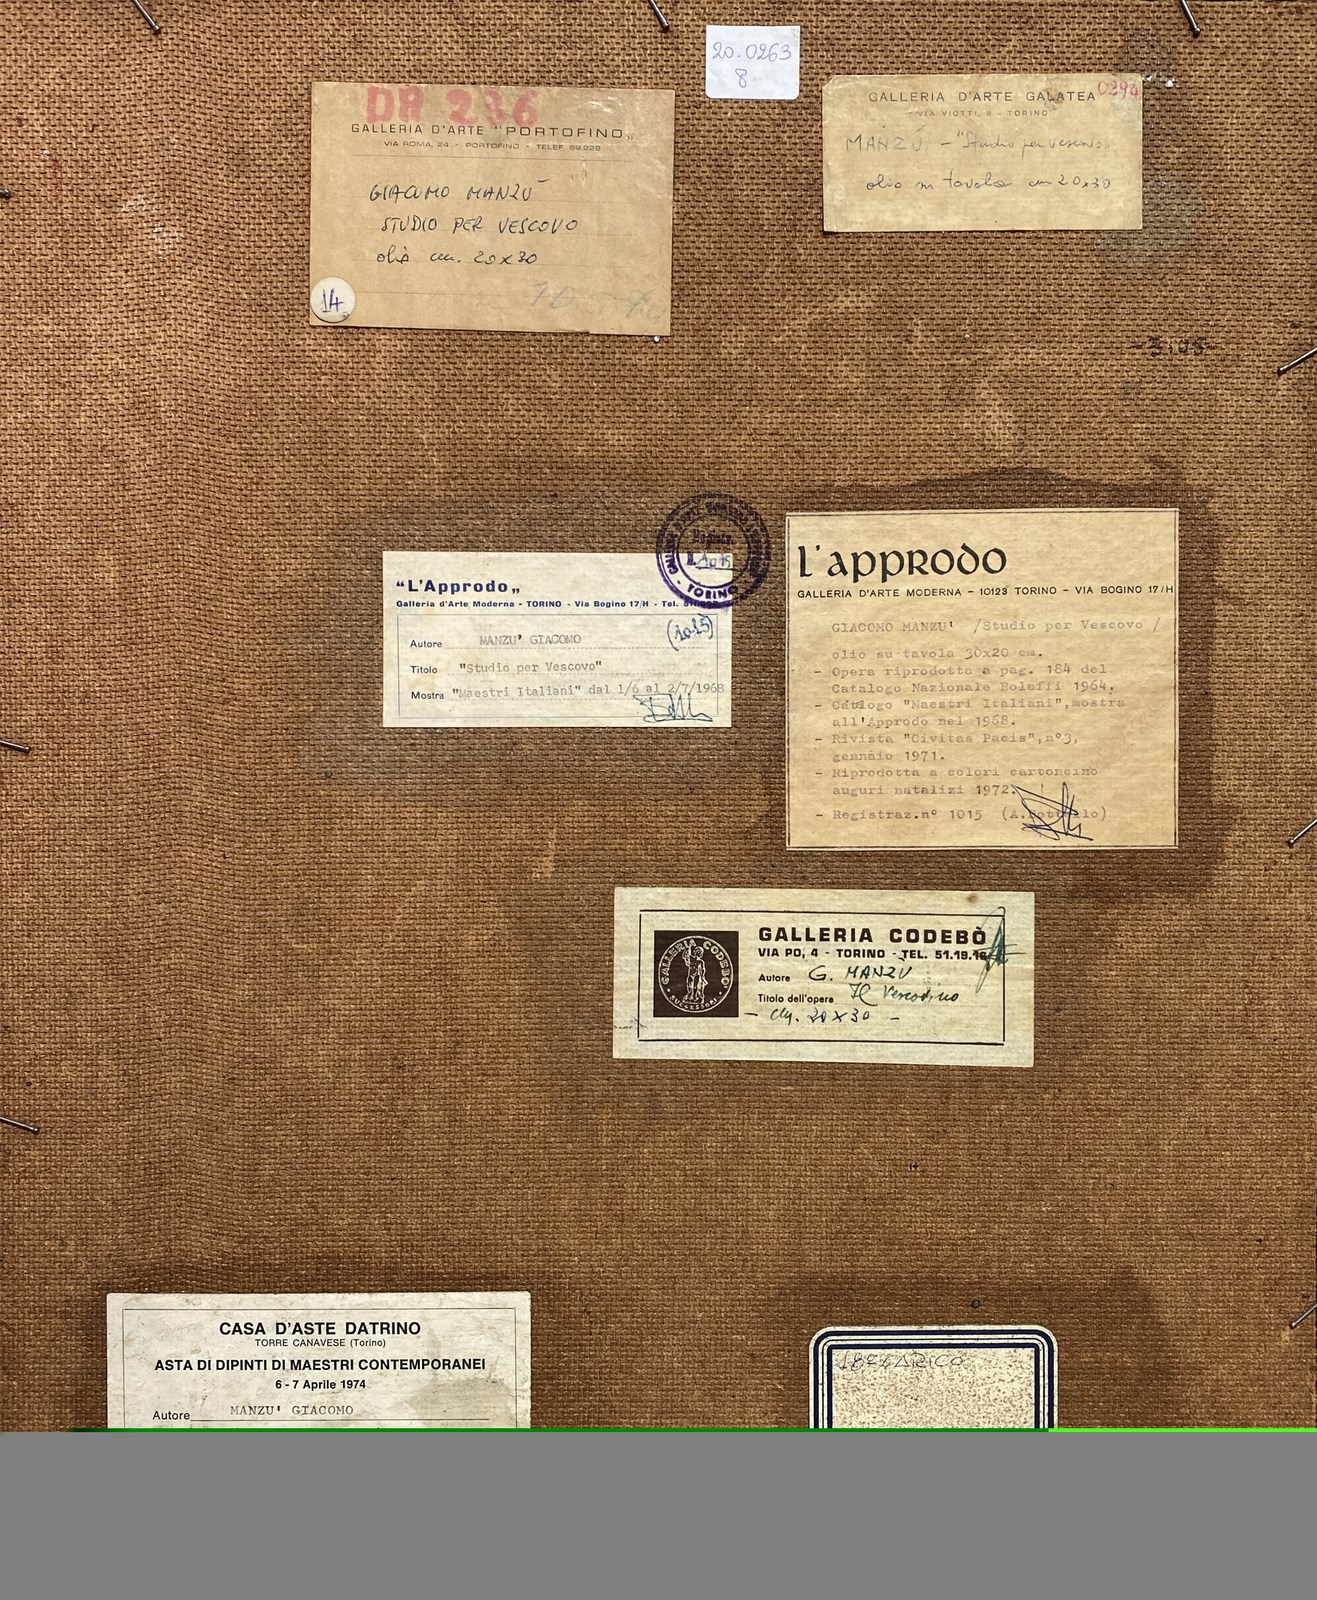 20.0263
8
DA 236
GALLERIA D'ARTE "PORTOFINO"
VIA ROMA, 24 - PORTOFINO - TELEF 69.229
GIACOMO MANZÙ
STUDIO PER VESCOVO
olio cm. 20x30
14
GALLERIA D'ARTE GALATEA
0294
VIA VIOTTI, 8 - TORINO
MANZÙ - "Studio per vescovo"
olio su tavola cm 20x30
"L'Approdo"
Galleria d'Arte Moderna - TORINO - Via Bogino 17/H - Tel.
(1015)
Autore MANZU' GIACOMO
Titolo "Studio per Vescovo"
Mostra "Maestri Italiani" dal 1/6 al 2/7/1968
TORINO
L'APPRODO
GALLERIA D'ARTE MODERNA - 10123 TORINO - VIA BOGINO 17/H
GIACOMO MANZU' /Studio per Vescovo /
olio su tavola 30x20 cm.
- Opera riprodotta a pag. 184 del
Catalogo Nazionale Bolaffi 1964.
- Catalogo "Maestri Italiani",mostra
all'Approdo nel 1968.
- Rivista "Civitas Pacis",n°3,
gennaio 1971.
- Riprodotta a colori cartoncino
auguri natalizi 1972.
- Registraz.n° 1015
GALLERIA CODEBÒ
SUCCESSORI
GALLERIA CODEBÒ
VIA PO, 4 - TORINO - TEL. 51.19.
Autore G. MANZÙ
Titolo dell'opera Il Vescovino
- cm. 20x30 -
CASA D'ASTE DATRINO
TORRE CANAVESE (Torino)
ASTA DI DIPINTI DI MAESTRI CONTEMPORANEI
6 - 7 Aprile 1974
Autore MANZU' GIACOMO